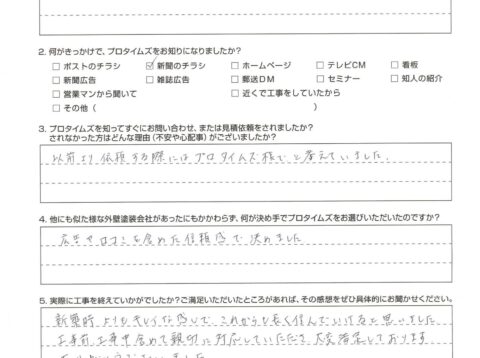 2. 何がきっかけで、プロタイムズをお知りになりましたか?
□ ポストのチラシ ☑ 新聞のチラシ □ ホームページ □ テレビCM □ 看板
□ 新聞広告 □ 雑誌広告 □ 郵送DM □ セミナー □ 知人の紹介
□ 営業マンから聞いて □ 近くで工事をしていたから
□ その他 ( )
3. プロタイムズを知ってすぐにお問い合わせ、または見積依頼をされましたか?
されなかった方はどんな理由(不安や心配事)がございましたか?
以前より依頼する際にはプロタイムズ様でと考えていました。
4. 他にも似た様な外壁塗装会社があったにもかかわらず、何が決め手でプロタイムズをお選びいただいたのですか?
広告や口コミを含めた信頼感で決めました
5. 実際に工事を終えていかがでしたか?ご満足いただいたところがあれば、その感想をぜひ具体的にお聞かせください。
新築時よりもキレイな感じで、これからも長く住んでいけると思いました
工事前、工事中含めて親切に対応していただき、大変満足しております